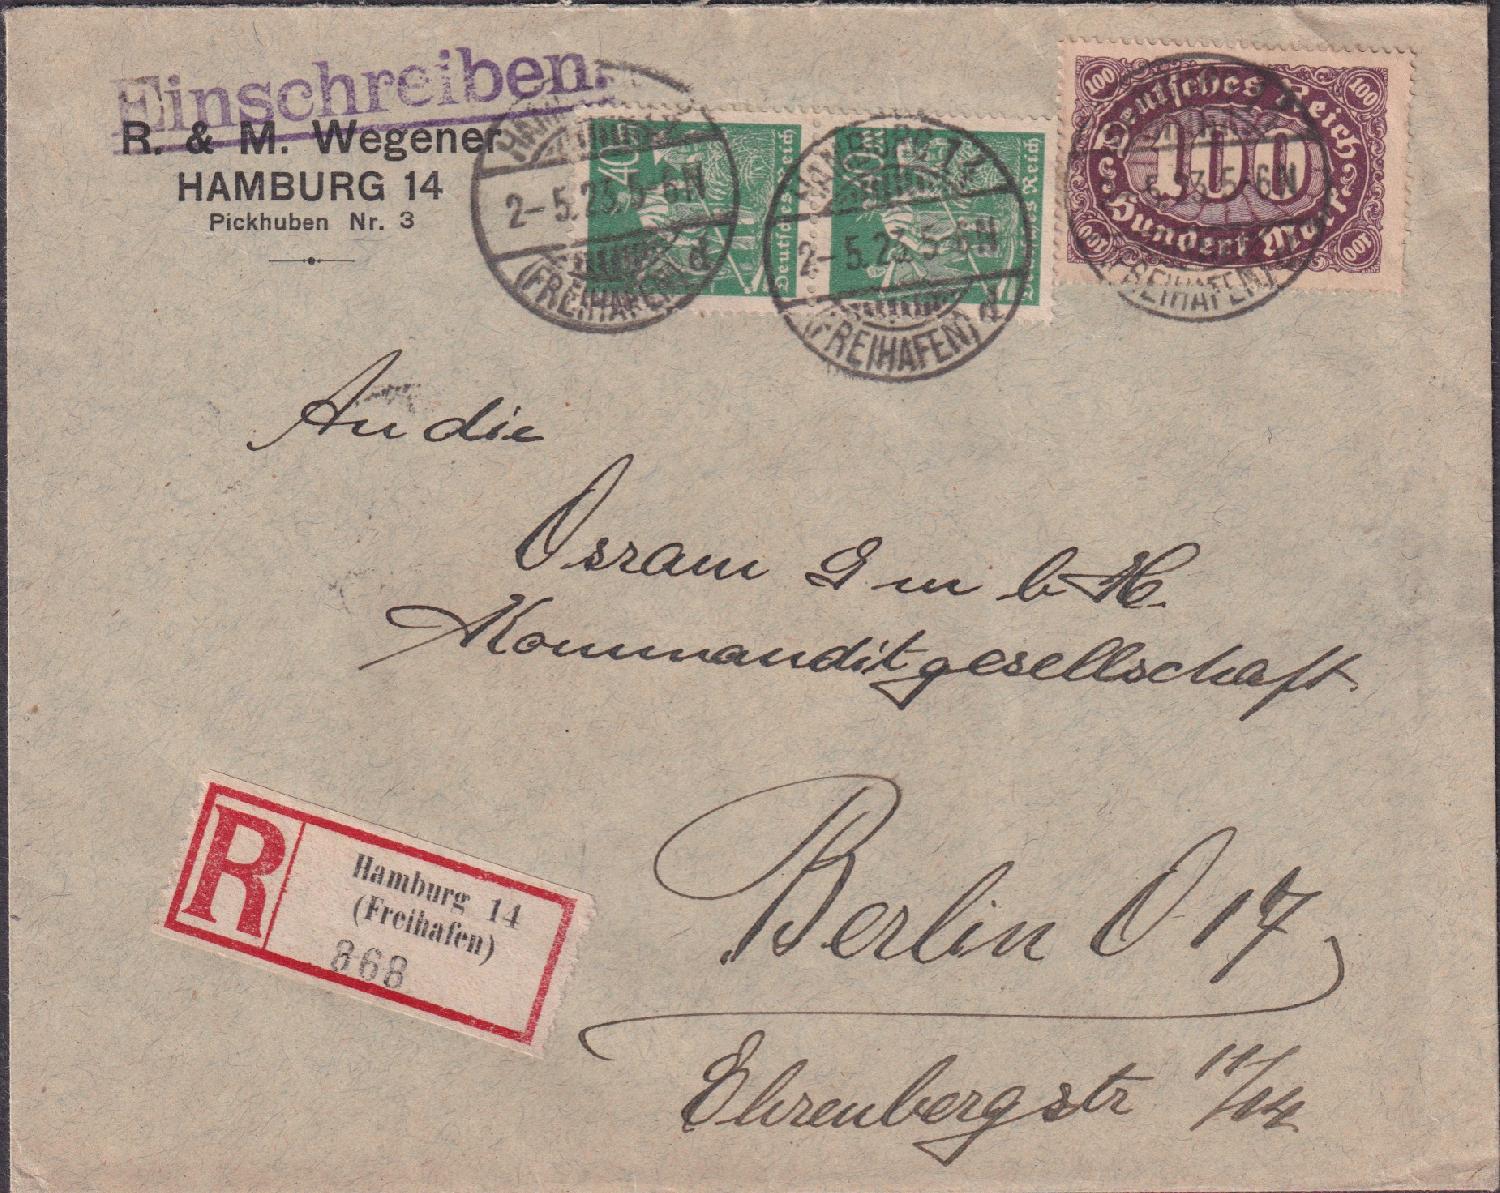 Einschreiben.
R. & M. Wegener
HAMBURG 14
Pickhuben Nr. 3
HAMBURG
2-5.23.5-6N
(FREIHAFEN) d
40
Deutsches Reich
HAMBURG 14
2-5.23.5-6N
(FREIHAFEN) d
40
Deutsches Reich
100 100
Deutsches Reich
100
Hundert Mark
100 100
5.23.5-6N
(FREIHAFEN)
An die
Osram G m b H.
Kommanditgesellschaft.
Berlin O 17
Ehrenbergstr 11/14
R
Hamburg 14
(Freihafen)
868